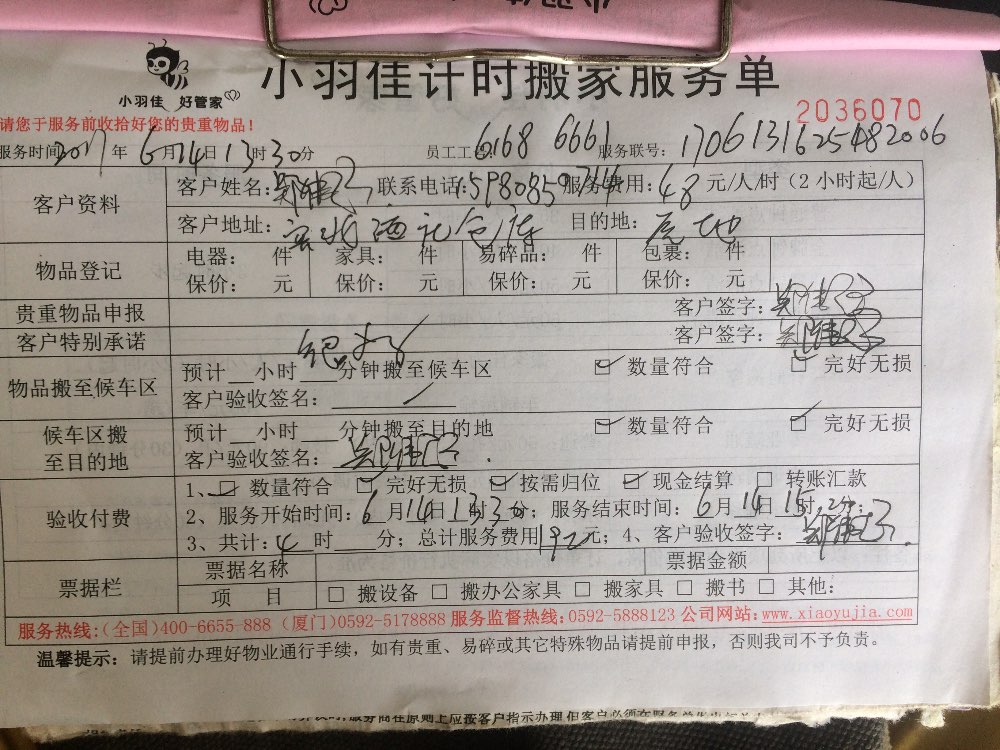 小羽佳计时搬家服务单
小羽佳 好管家
2036070
请您于服务前收拾好您的贵重物品！
服务时间2017年6月14日13时30分 员工工 6168 6661 服务联号：1706131625482006
客户资料 客户姓名： 联系电话： 服务费用：48元/人/时（2小时起/人）
客户地址： 目的地：
物品登记 电器： 件 家具： 件 易碎品： 件 包裹： 件
保价： 元 保价： 元 保价： 元 保价： 元
贵重物品申报 客户签字：
客户特别承诺 客户签字：
物品搬至候车区 预计__小时___分钟搬至候车区 ☑ 数量符合 ☑ 完好无损
客户验收签名：
候车区搬至目的地 预计__小时___分钟搬至目的地 ☑ 数量符合 ☑ 完好无损
客户验收签名：
验收付费 1、☑ 数量符合 ☑ 完好无损 ☑ 按需归位 ☑ 现金结算 □ 转账汇款
2、服务开始时间：6月14日13时3分；服务结束时间：6月14日15时 分；
3、共计：4时___分；总计服务费用192元；4、客户验收签字：
票据栏 票据名称 票据金额
项 目 □ 搬设备 □ 搬办公家具 □ 搬家具 □ 搬书 □ 其他：
服务热线：(全国)400-6655-888 (厦门)0592-5178888 服务监督热线：0592-5888123 公司网站：www.xiaoyujia.com
温馨提示：如有贵重、易碎或其它特殊物品请提前申报，否则我司不予负责。请提前办理好物业通行手续，